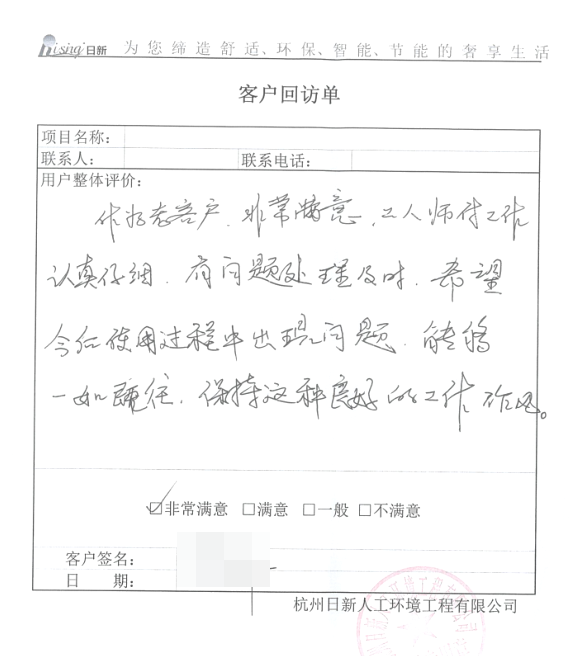 Rising 日新 为您缔造舒适、环保、智能、节能的奢享生活
客户回访单
项目名称：
联系人： 联系电话：
用户整体评价：
作为老客户，非常满意，工人师傅工作
认真仔细，有问题处理及时，希望
今后使用过程中出现问题，能够
一如既往，保持这种良好的工作作风。
☑非常满意 □满意 □一般 □不满意
客户签名：
日 期：
杭州日新人工环境工程有限公司